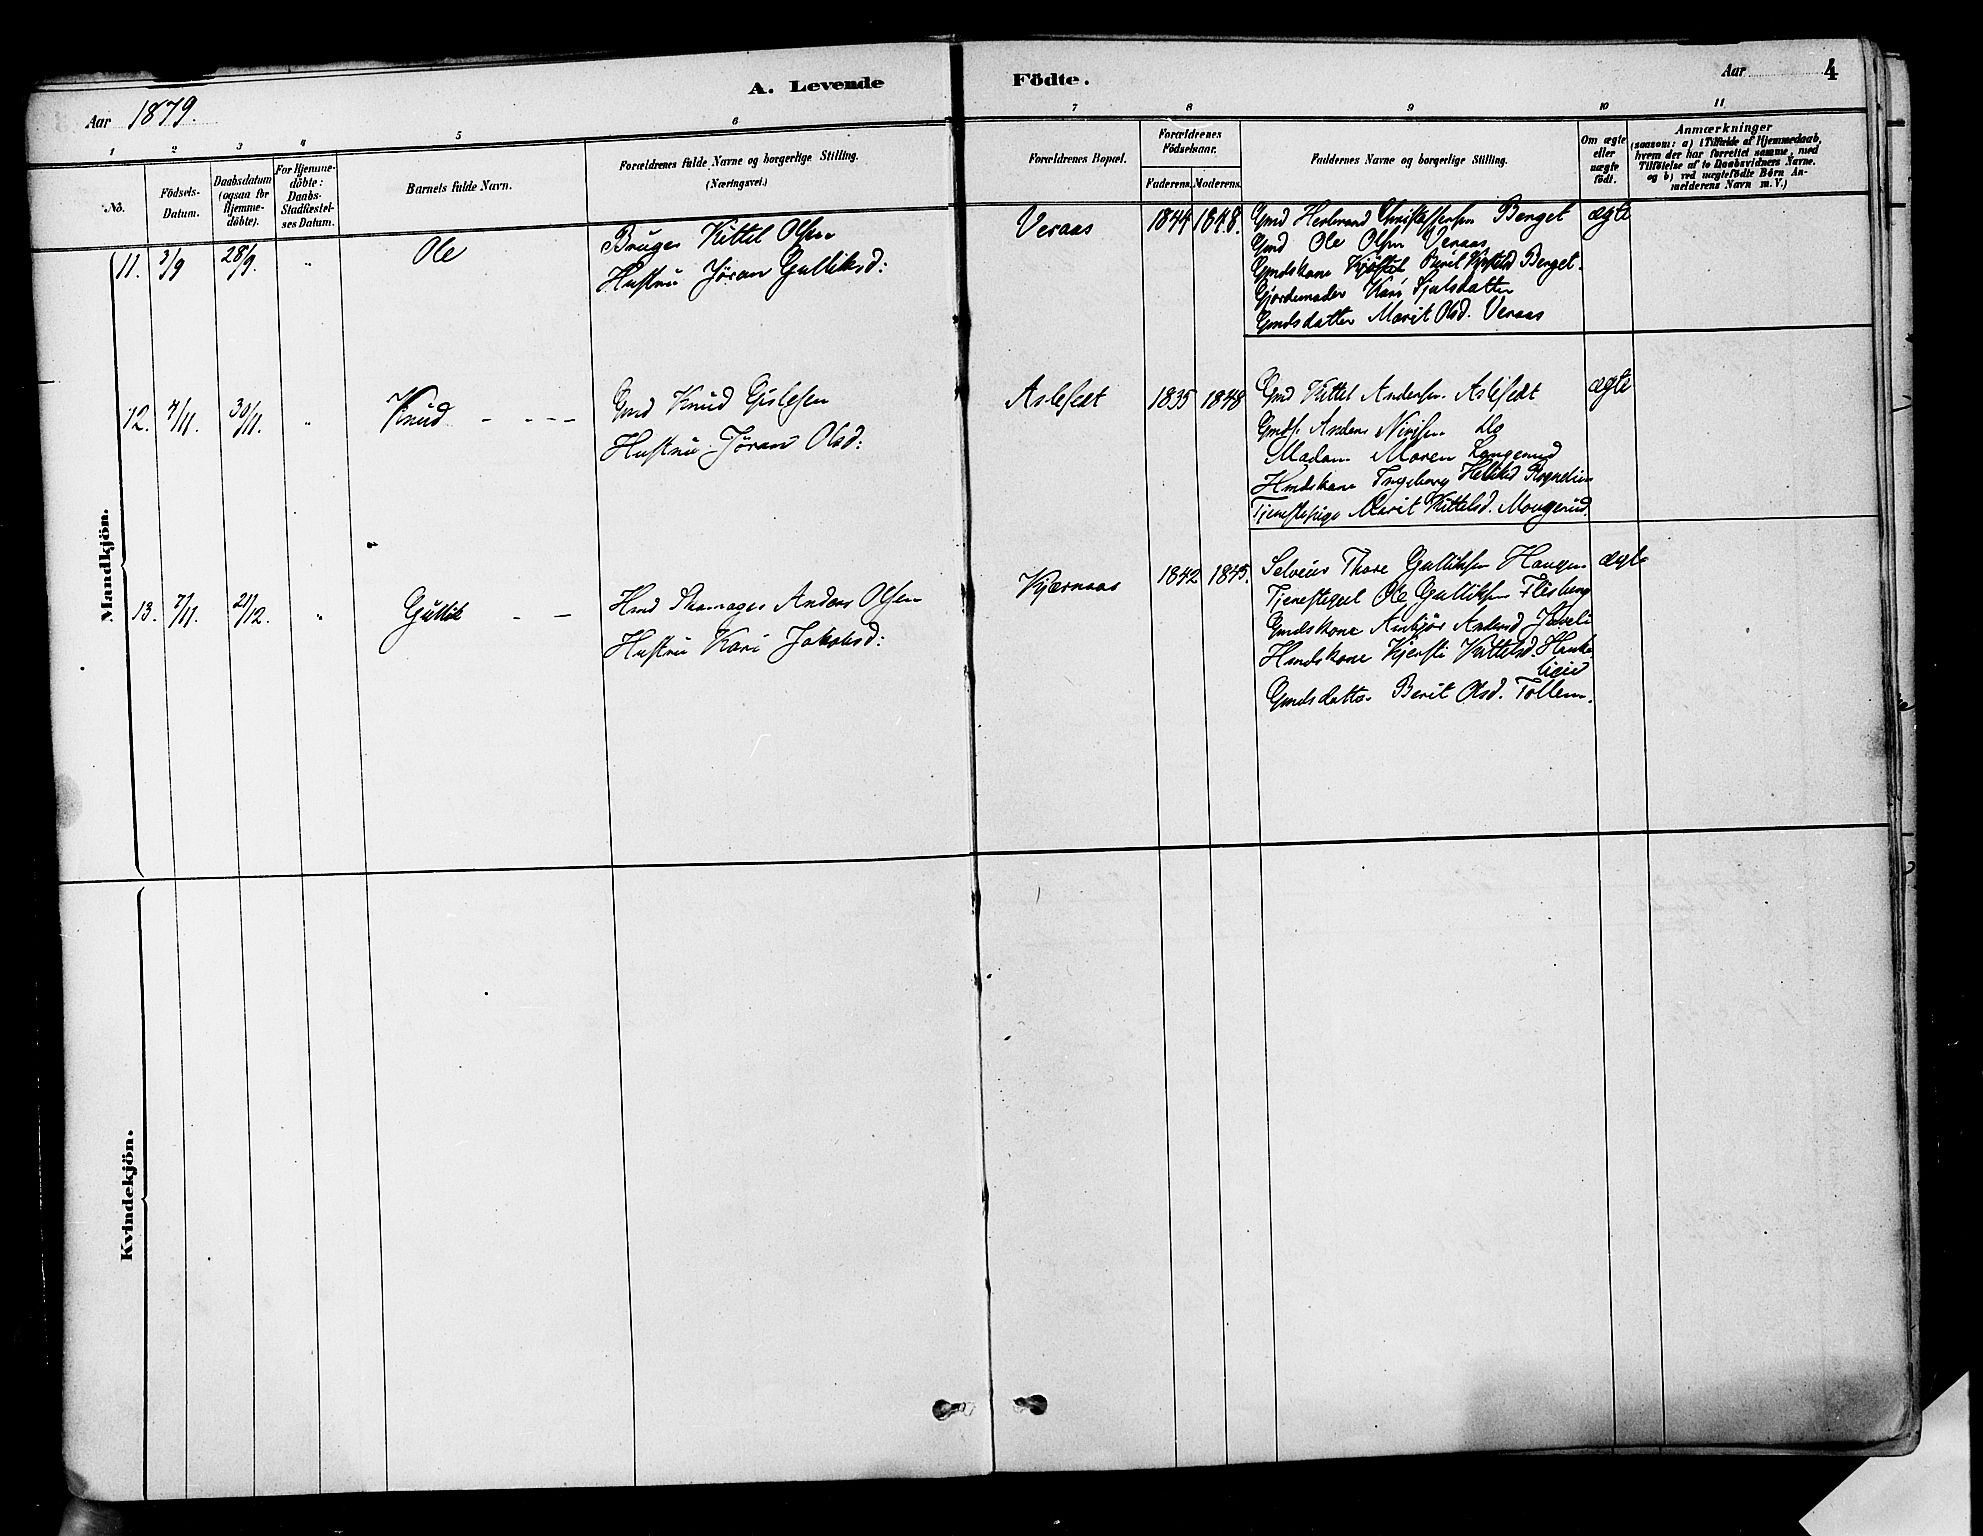 Aar 1879.
A. Levende Födte.
Aar 4
1 2 3 4 5 6 7 8 9 10 11
No.
Födsels-Datum.
Daabsdatum (ogsaa for Hjemme-döbte).
For Hjemme-döbte: Daabs-Stadfæstel-ses Datum.
Barnets fulde Navn.
Forældrenes fulde Navne og borgerlige Stilling.
(Næringsvei.)
Forældrenes Bopæl.
Forældrenes Födselsaar.
Faderens. Moderens.
Faddernes Navne og borgerlige Stilling.
Om ægte eller uægte födt.
Anmærkninger
(saasom: a) i Tilfælde af Hjemmedaab,
hvem der har forrettet samme, med
Tilföielse af to Daabsvidners Navne,
og b) ved uægtefödte Börn An-
melderens Navn m. V.)
Mandkjön.
11. 28/9. " Ole
Bruger Kittel Olsen
Hustru Jöran Gulliksd:
Veraas 1844 1848.
Gmd Herbrand Christoffersen Berget
Gmd Ole Olsen Veraas
Gmdskone Berit Berget.
Gjordemoder Kari
Gmdsdatter Marit Olsd. Veraas
ægte
12. 7/11. 30/11. " Knud - - - -
Gmd Knud Gislesen
Hustru Jöran Olsd:
Aslefedt 1835 1848
Gmd Kittel Andersen Aslefedt
Gmds. Anders Do
Madam Maren Langerud
Hmdskone Ingeborg
Tjenestepige Marit Kittelsd. Mougerud.
ægte
13. 7/11. 21/12. " Gullik - -
Hmd Skomager Anders Olsen
Hustru Kari Jakobsd:
Kjærnaas 1842 1845.
Selveier Thore Gulliksen Haugen
Ole Gulliksen Flesberg
Gmdskone Anbjör Andersd
Hmdskone Kjersti Kittelsd.
Gmdsdatter Berit Olsd.
ægte
Kvindekjön.